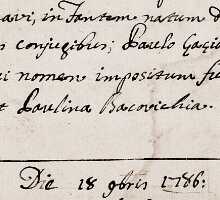 avi, in Fantem natum d
conjugibus; Paulo Gaçic
i nomen impositum fu
t Paulina Bacovichia.
Die 18 9bris 1786: